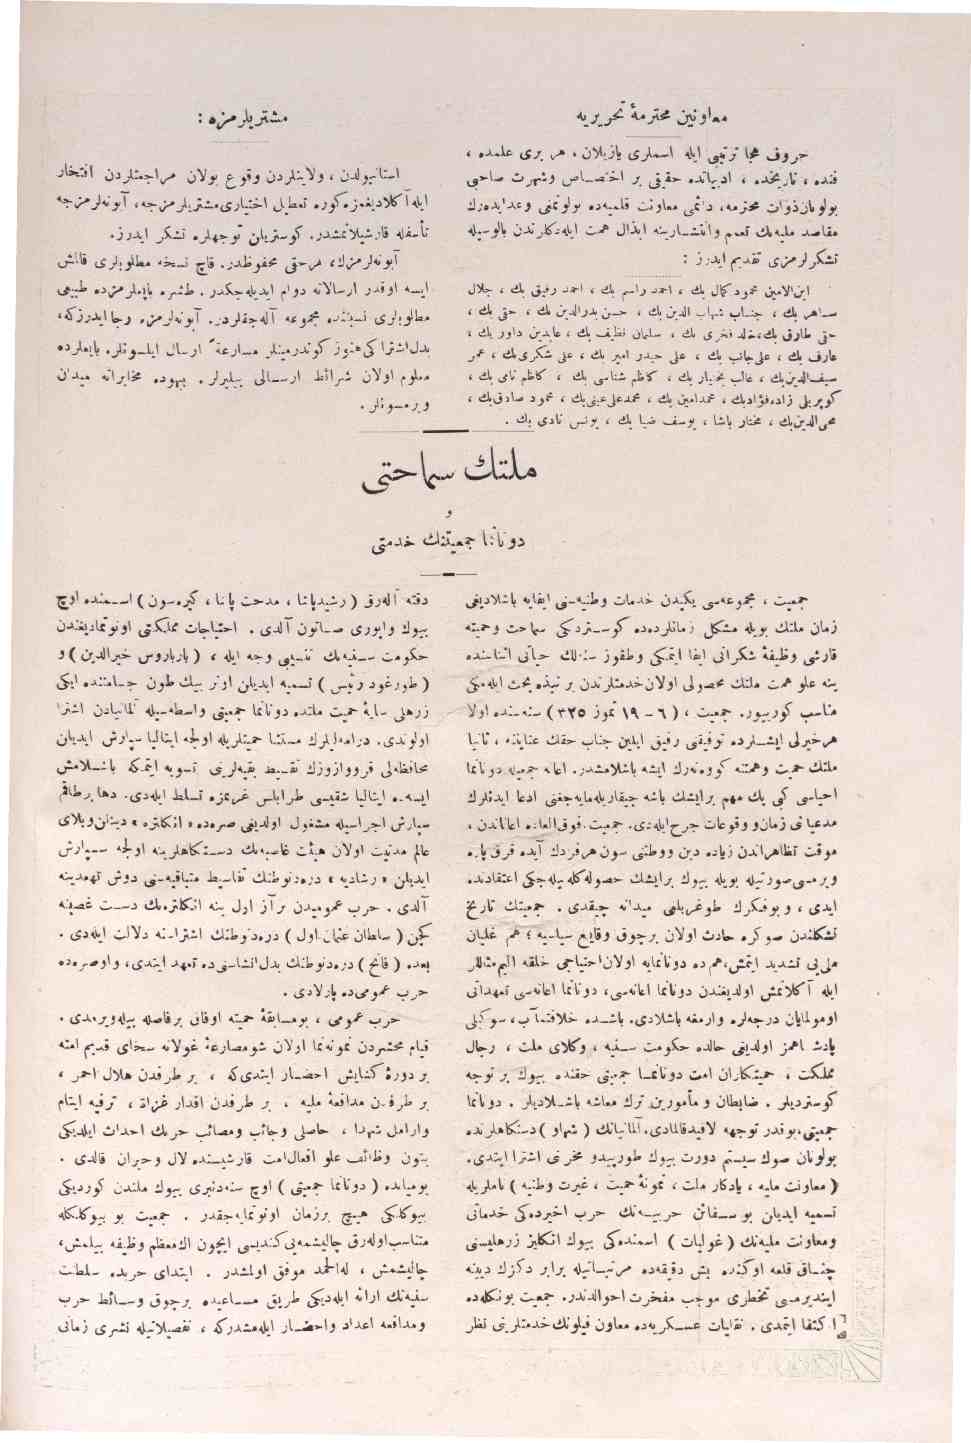 معاونین محترمهٔ تحریریه
حروف هجا ترتیبی ایله اسملری یازیلان ، هر بری علمده ،
فنده ، تاریخده ، ادبیاتده حقیقی بر اختصاص وشهرت صاحبی
بولونان ذوات محترمه، دائمی معاونت قلمیه‌ده بولونمغی وعد ایده‌رك
مقاصد ملیه‌نك تعمیم وانتشارینه ابذال همت ایله‌دكلرندن بالوسیله
تشكرلرمزی تقدیم ایدرز :
ابن‌الامین محمود كمال بك ، احمد راسم بك ، احمد رفیق بك ، جلال
ساهر بك ، جناب شهاب الدین بك ، حسن بدرالدین بك ، حقی بك ،
حقی طارق بك، خالد فخری بك ، سلیمان نظیف بك ، عابدین داور بك ،
عارف بك ، علی جانب بك ، علی حیدر امیر بك ، علی شكری بك ، عمر
سیف‌الدین بك ، غالب بختیار بك ، كاظم شناسی بك ، كاظم نامی بك ،
كوپریلی زاده فؤاد بك ، محمد امین بك ، محمد علی عینی بك ، محمود صادق بك ،
محی‌الدین بك ، مختار پاشا ، یوسف ضیا بك ، یونس نادی بك .
مشتریلرمزه :
استانبولدن ، ولایتلردن وقوع بولان مراجعتلردن افتخار
ایله آكلادیغمزه كوره تعطیل اختیاری مشتریلرمزجه، آبونه‌لرمزجه
تأسفله قارشیلانمشدر. كوستریلن توجهلره تشكر ایدرز.
آبونه‌لرمزك، هر حقی محفوظدر. قاچ نسخه مطلوبلری قالمش
ایسه اوقدر ارسالانه دوام ایدیله‌جكدر. طشره بایعلرمزده طبیعی
مطلوبلری نسبتنده مجموعه آله‌جقلردر. آبونه‌لرمزه رجا ایدرزكه،
بدل اشتراكی هنوز كوندرمینلر مسارعةً ارسال ایلسونلر. بایعلرده
معلوم اولان شرائط ارسالی بیلیرلر. بیهوده مخابراته میدان
ویرمسونلر.
ملتك سماحتی
و
دونانما جمعیتنك خدمتی
جمعیت ، مجموعه‌سی یكیدن خدمات وطنیه‌سنی ایفایه باشلادیغی
زمان ملتك بویله مشكل زمانلرده‌ده كوستردیكی سماحت وحمیته
قارشی وظیفهٔ شكرانی ایفا ایتمكی وطقوز سنه‌لك حیاتی اثناسنده
ینه علو همت ملتك محصولی اولان خدمتلرندن بر نبذه بحث ایله‌مكی
مناسب كورییور. جمعیت ، ( ٦ - ١٩ تموز ٣٢٥ ) سنه‌سنده اولا
هر خیرلی ایشلرده توفیقنی رفیق ایلین جناب حقك عنایتنه ، ثانیا
ملتك حمیت وهمتنه كووه‌نه‌رك ایشه باشلامشدر. اعانه جمعیله دونانما
احیاسی كبی پك مهم بر ایشك باشه چیقاریله‌مایه‌جغنی ادعا ایدنلرك
مدعیاتنی زمان و وقوعات جرح ایله‌دی. جمعیت، فوق‌العاده اعاناتدن ،
موقت تظاهراتدن زیاده دین ووطننی سون هر فردك آیده قرق پاره
ویرمسی صورتیله بویله بیوك بر ایشك حصوله كله‌بیله‌جكی اعتقادنده
ایدی ، و بو فكرك طوغریلغی میدانه چیقدی . جمعیتك تاریخ
تشكلندن صوكره حادث اولان برچوق وقایع سیاسیه ؛ هم غلیان
ملی‌یی تشدید ایتمش، هم‌ده دونانمایه اولان احتیاجی خلقه الیم مثاللر
ایله آكلاتمش اولدیغندن دونانما اعانه‌سی، دونانما اعانه‌سی تعهداتی
اومولمایان درجه‌لره وارمغه باشلادی. باشده خلافتمآب، سوكیلی
پادشاهمز اولدیغی حالده حكومت سنیه ، وكلای ملت ، رجال
مملكت ، حمیتكاران امت دونانما جمعیتی حقنده بیوك بر توجه
كوستردیلر . ضابطان و مأمورین ترك معاشه باشلادیلر . دونانما
جمعیتی، بوقدر توجهه لاقید قالمادی. آلمانیانك ( شیخاو ) دستكاهلرنده
بولونان صوك سیستم دورت بیوك طورپیدو مخربنی اشترا ایتدی.
( معاونت ملیه ، یادكار ملت ، نمونهٔ حمیت ، غیرت وطنیه ) ناملریله
تسمیه ایدیلن بو سفائن حربیه‌نك حرب اخیرده‌كی خدماتی
ومعاونت ملیه‌نك ( غولیات ) اسمنده‌كی بیوك انكلیز زرهلیسنی
چناق قلعه اوكنده بش دقیقه‌ده مرتباتیله برابر دكزك دیبنه
ایندیرمسی تخطری موجب مفخرت احوالدندر. جمعیت بونكله‌ده
اكتفا ایتمدی . نقلیات عسكریه‌ده معاون فیلونك خدمتلرینی نظر
دقته آله‌رق ( رشید پاشا ، مدحت پاشا ، كیره‌سون ) اسمنده اوچ
بیوك واپوری صاتون آلدی . احتیاجات مملكتی اونوتمادیغندن
حكومت سنیه‌نك تنسیبی وجه ایله ، ( بارباروس خیرالدین ) و
( طورغود رئیس ) تسمیه ایدیلن اونر بیك طون جسامتنده ایكی
زرهلی سایهٔ حمیت ملتده دونانما جمعیتی واسطه‌سیله آلمانیادن اشترا
اولوندی. درامه‌لیلرك مستثنا حمیتلریله اولجه ایتالیا سپارش ایدیلن
محافظه‌لی قرووازورك تقسیط بقیه‌لرینی تسویه ایتمكه باشلامش
ایسه‌ده ایتالیا شقیسی طرابلس غربمزه تسلط ایله‌دی. دها بر طاقم
سپارش اجراسیله مشغول اولدیغی صره‌ده « انكلتره » دینلن وبلای
عالم مدنیت اولان هیئت غاصبه‌نك دستكاهلرینه اولجه سپارش
ایدیلن « رشادیه » دره‌دنوطنك تقاسیط متباقیه‌سنی دوش تعهدینه
آلدی . حرب عمومیدن براز اول ینه انكلتره‌نك دست غصبنه
كچن ( سلطان عثمان اول ) دره‌دنوطنك اشتراسنه دلالت ایله‌دی .
بعده ( فاتح ) دره‌دنوطنك بدل انشاسنی‌ده تعهد ایتدی، واوصره‌ده
حرب عمومی‌ده پارلادی .
حرب عمومی ، بو مسابقهٔ حمیته اوفاق بر فاصله بیله ویرمدی .
قیام محشردن نمونه‌نما اولان شو مصارعهٔ غولانه سخای قدیم امته
بر دورهٔ كشایش احضار ایتدی‌كه ، بر طرفدن هلال احمر ،
بر طرفدن مدافعهٔ ملیه ، بر طرفدن اقدار غزاة ، ترفیه ایتام
وارامل شهدا ، حاصلی وجائب ومصائب حربك احداث ایلدیكی
بتون وظائف علو افعال امت قارشیسنده لال وحیران قالدی .
بومیانده ( دونانما جمعیتی ) اوچ سنه‌دنبری بیوك ملتدن كوردیكی
بیوكلكی هیچ بر زمان اونوتمایه‌جقدر . جمعیت بو بیوكلكله
متناسب اوله‌رق چالیشمه‌یی كندیسی ایچون اك معظم وظیفه بیلمش،
چالیشمش ، لله الحمد موفق اولمشدر . ابتدای حربده سلطنت
سنیه‌نك ارائه ایله‌دیكی طریق مساعیده برچوق وسائط حرب
ومدافعه اعداد واحضار ایله‌مشدركه ، تفصیلاتیله نشری زمانی